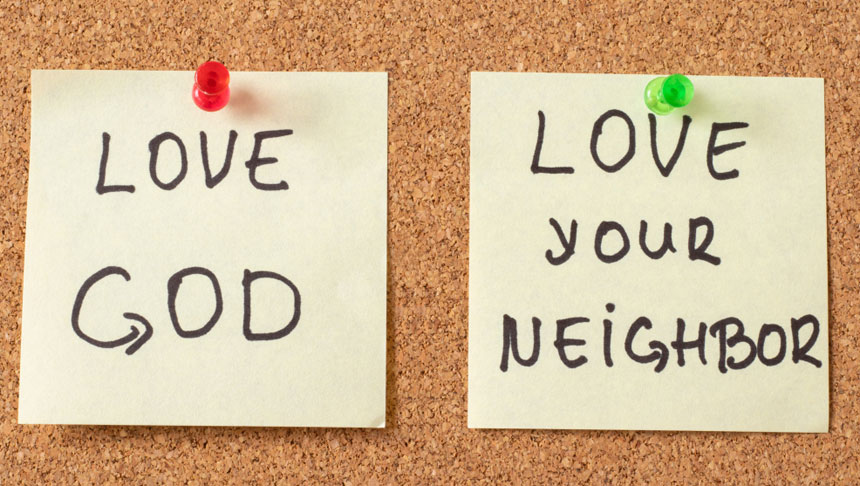 LOVE
GOD
LOVE
yOUR
NEiGHBOR